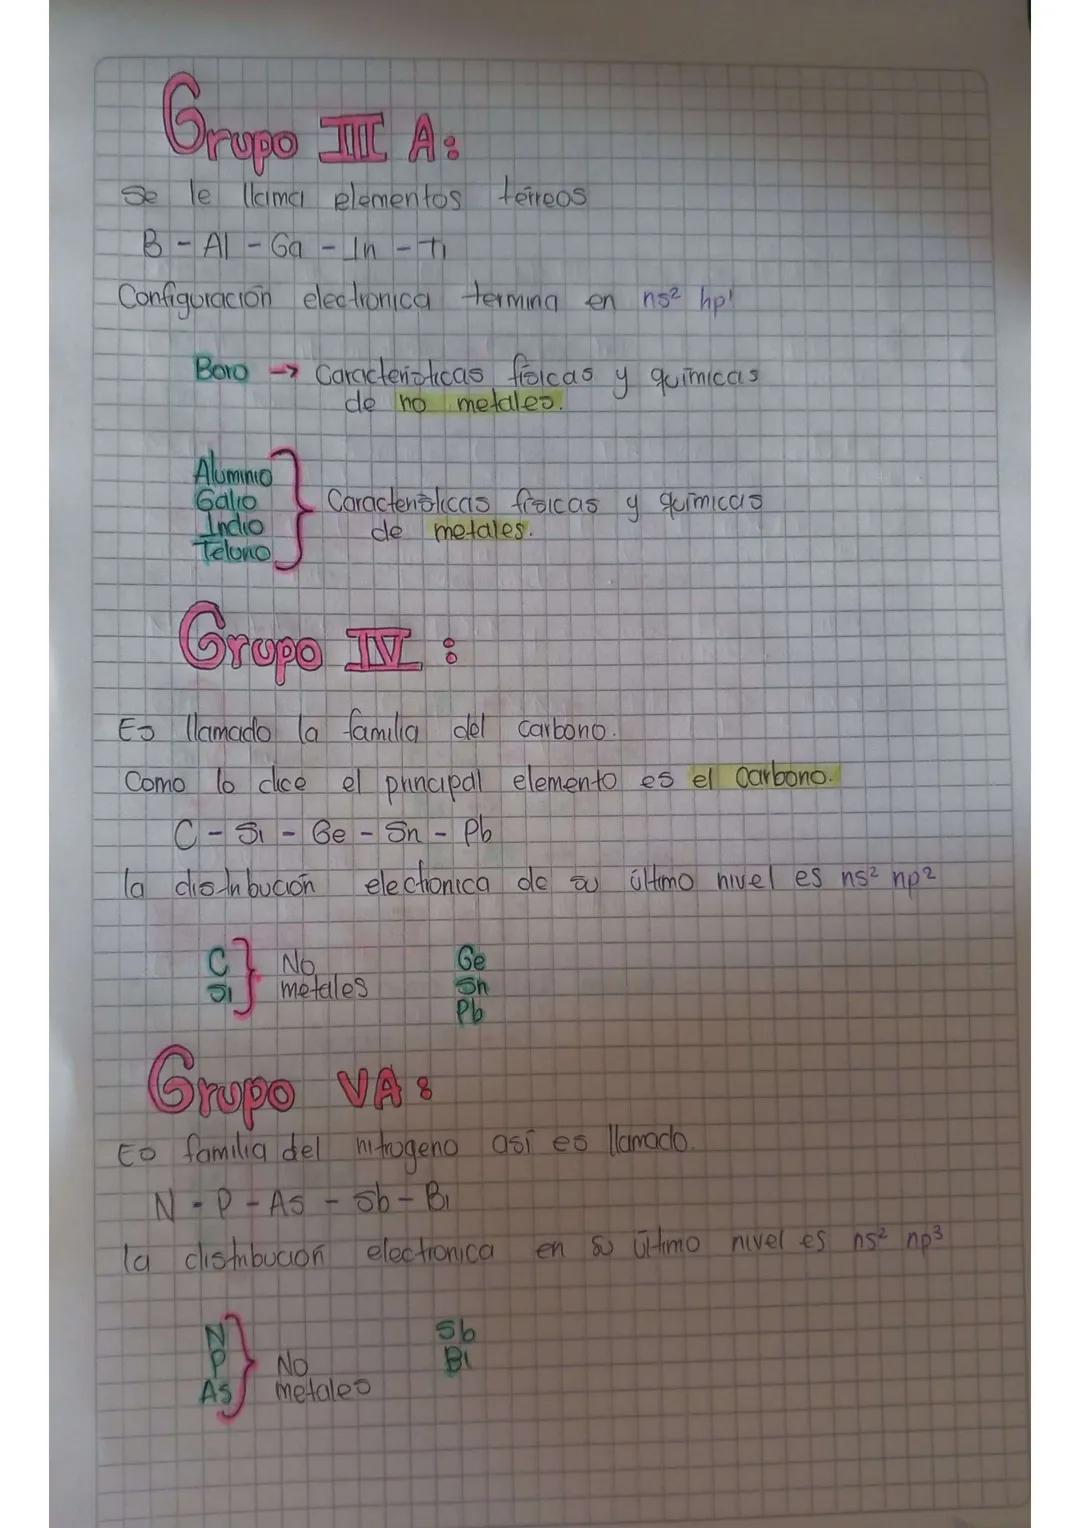 Grupo III A:
Se le llama elementos térreos
B - Al - Ga - In - Ti
Configuración electronica termina en ns² hp¹
Boro → Características físicas y químicas
de no metales.
Aluminio
Galio
Indio
Teluno
Características físicas y químicas
de metales.
Grupo IV :
Es llamado la familia del carbono.
Como lo dice el principal elemento es el Carbono.
C - Si - Ge - Sn - Pb
la distribución electronica de su último nivel es ns² np²
C
Si
No
metales
Ge
Sn
Pb
Grupo VA:
Es familia del nitrogeno así es llamado.
N - P - As - Sb - Bi
la distribución electronica en su último nivel es ns² np³
N
P
As
No
metales
Sb
Bi